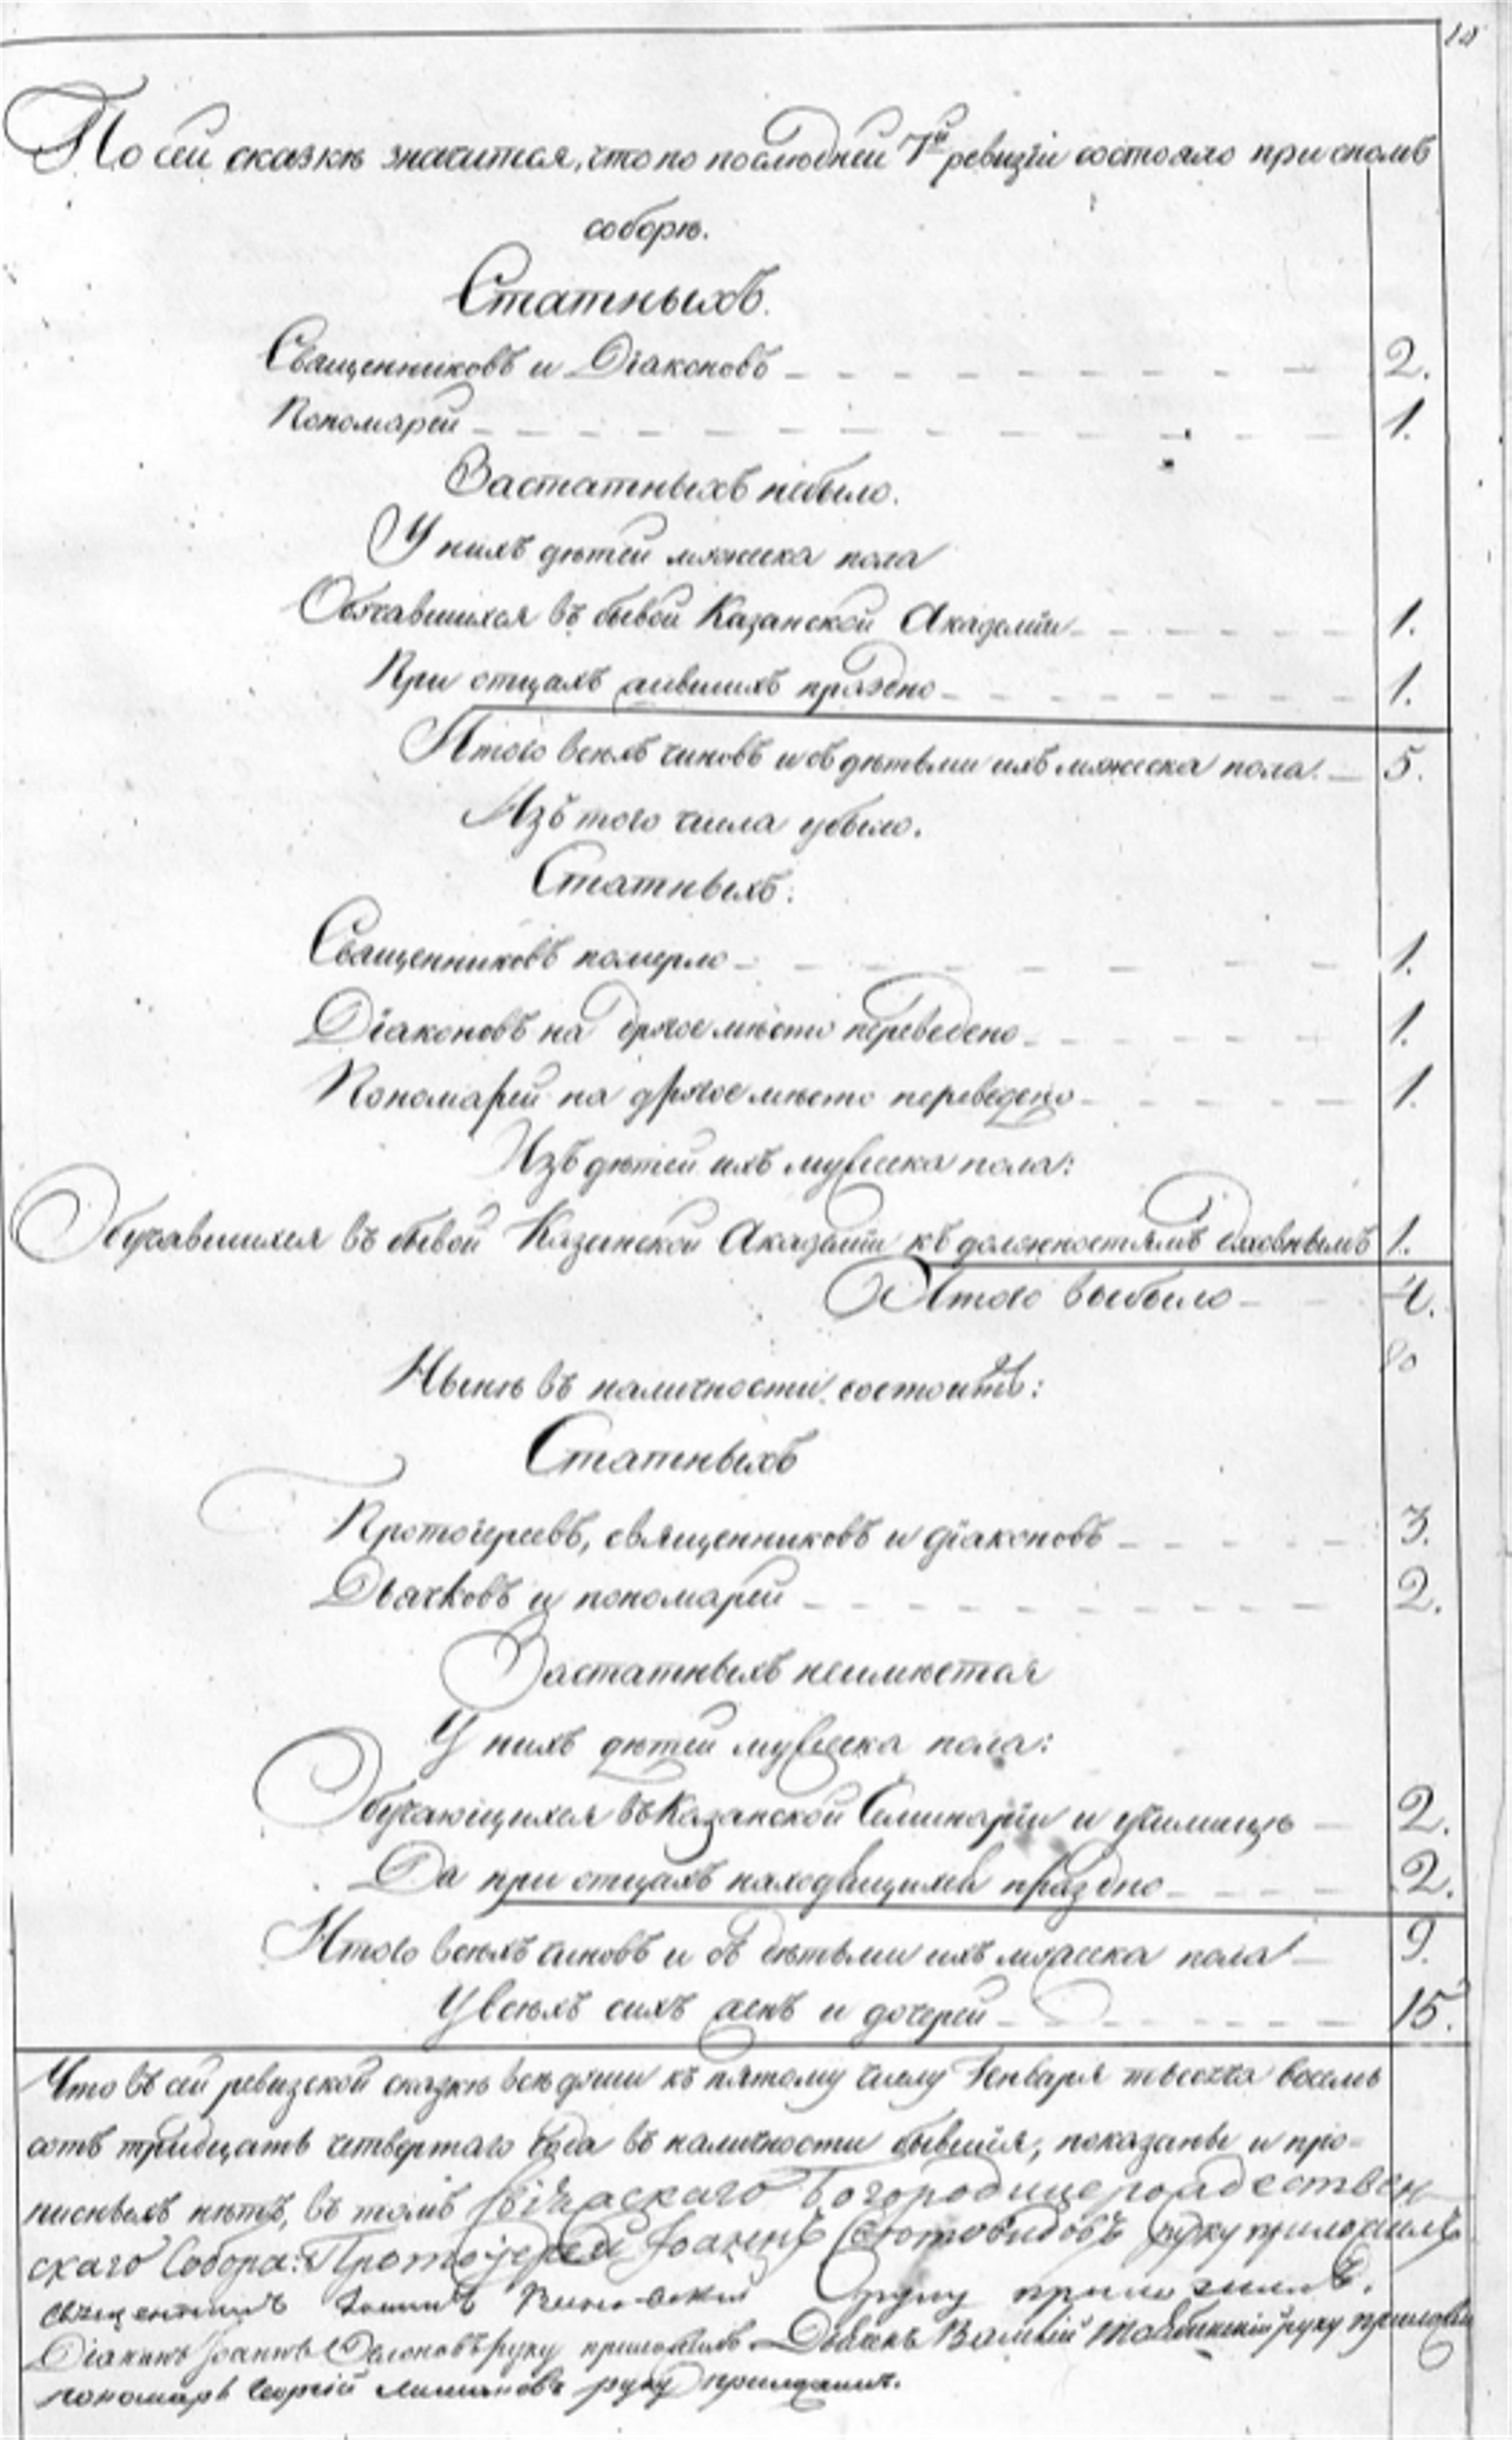 По сей сказкѣ значится, что по послѣдней 7й ревизіи состояло при ономъ
соборѣ.
Статныхъ.
Священниковъ и Діаконовъ 2.
Пономарей 1.
Застатныхъ небыло.
У нихъ дѣтей мужеска пола
Обучавшихся въ бывой Казанской Академіи 1.
При отцахъ жившихъ праздно 1.
Итого всѣхъ чиновъ и съ дѣтьми ихъ мужеска пола 5.
Изъ того числа убыло.
Статныхъ:
Священниковъ померло 1.
Діаконовъ на другое мѣсто переведено 1.
Пономарей на другое мѣсто переведено 1.
Изъ дѣтей ихъ мужеска пола:
Обучавшихся въ бывой Казанской Академіи къ должностямъ духовнымъ 1.
Итого выбыло 4.
Нынѣ въ наличности состоитъ:
Статныхъ
Протоіереевъ, священниковъ и діаконовъ 3.
Дьячковъ и пономарей 2.
Застатныхъ неимѣется
У нихъ дѣтей мужеска пола:
Обучающихся въ Казанской Семинаріи и училищѣ 2.
Да при отцахъ находящихся праздно 2.
Итого всѣхъ чиновъ и съ дѣтьми ихъ мужеска пола 9.
У всѣхъ сихъ женъ и дочерей 15.
Что въ сей ревизской сказкѣ всѣ души къ пятому числу Генваря тысяча восемь
сотъ тридцать четвертаго года въ наличности бывшія, показаны и про-
писныхъ нѣтъ, въ томъ Богородицерождествен
скаго Собора: Протоіерей Іоаннъ руку приложилъ
священникъ руку приложилъ.
Діаконъ Іоаннъ руку приложилъ Дьячекъ руку приложилъ
пономарь Георгій руку приложилъ.